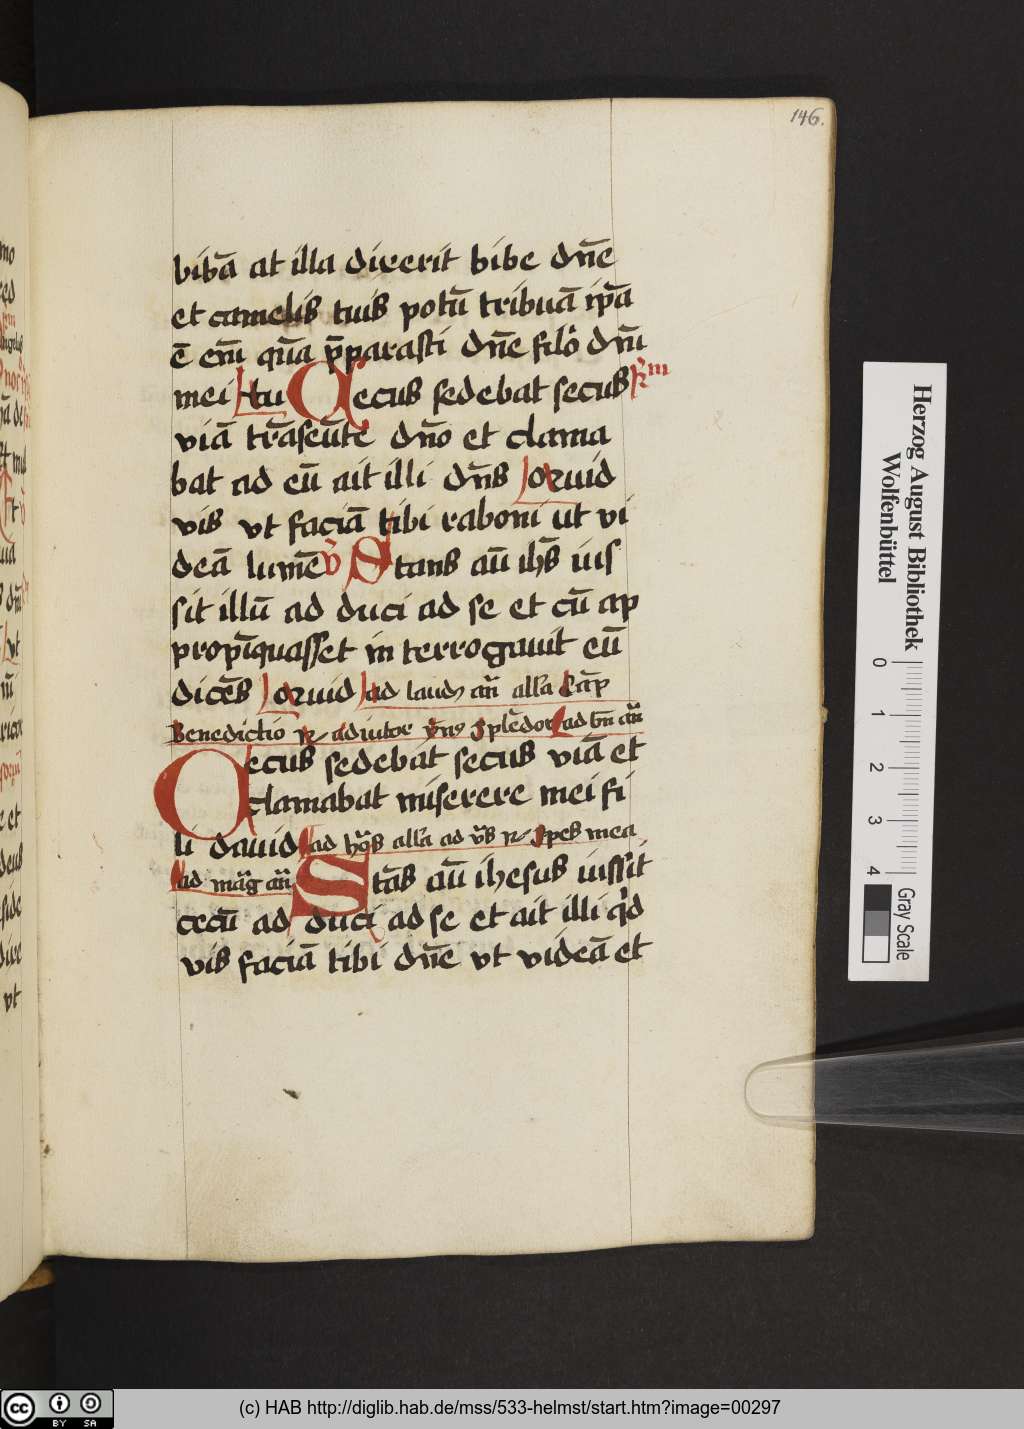 146.
bibā at illa dixerit bibe dn̄e
et camelis tuis potū tribuā ip̄a
ē em̄ qūa p̄parasti dn̄e filo dn̄i
mei tu Cecus sedebat secus Rm
viā trāseūte dn̄o et clama
bat ad eū ait illi dn̄s Quid
vis vt faciā tibi raboni ut vi
deā lumē v̄ Stans aū ih̄s ius
sit illū ad duci ad se et cū ap
propīquasset in terrogauit eū
dicēs Quid ad laud an̄ all'a Cap
Benedictio R adiutor Splēdor ad bn̄ an̄
Cecus sedebat secus viā et
clamabat miserere mei fi
li dauid ad all'a ad v̄s R Spes mea
ad mag̅ an̄ Stās aū ihesus iussit
cecū ad duci ad se et ait illi qd
vis faciā tibi dn̄e vt videā et
Herzog August Bibliothek
Wolfenbüttel
0 1 2 3 4
Gray Scale
cc BY SA
(c) HAB http://diglib.hab.de/mss/533-helmst/start.htm?image=00297